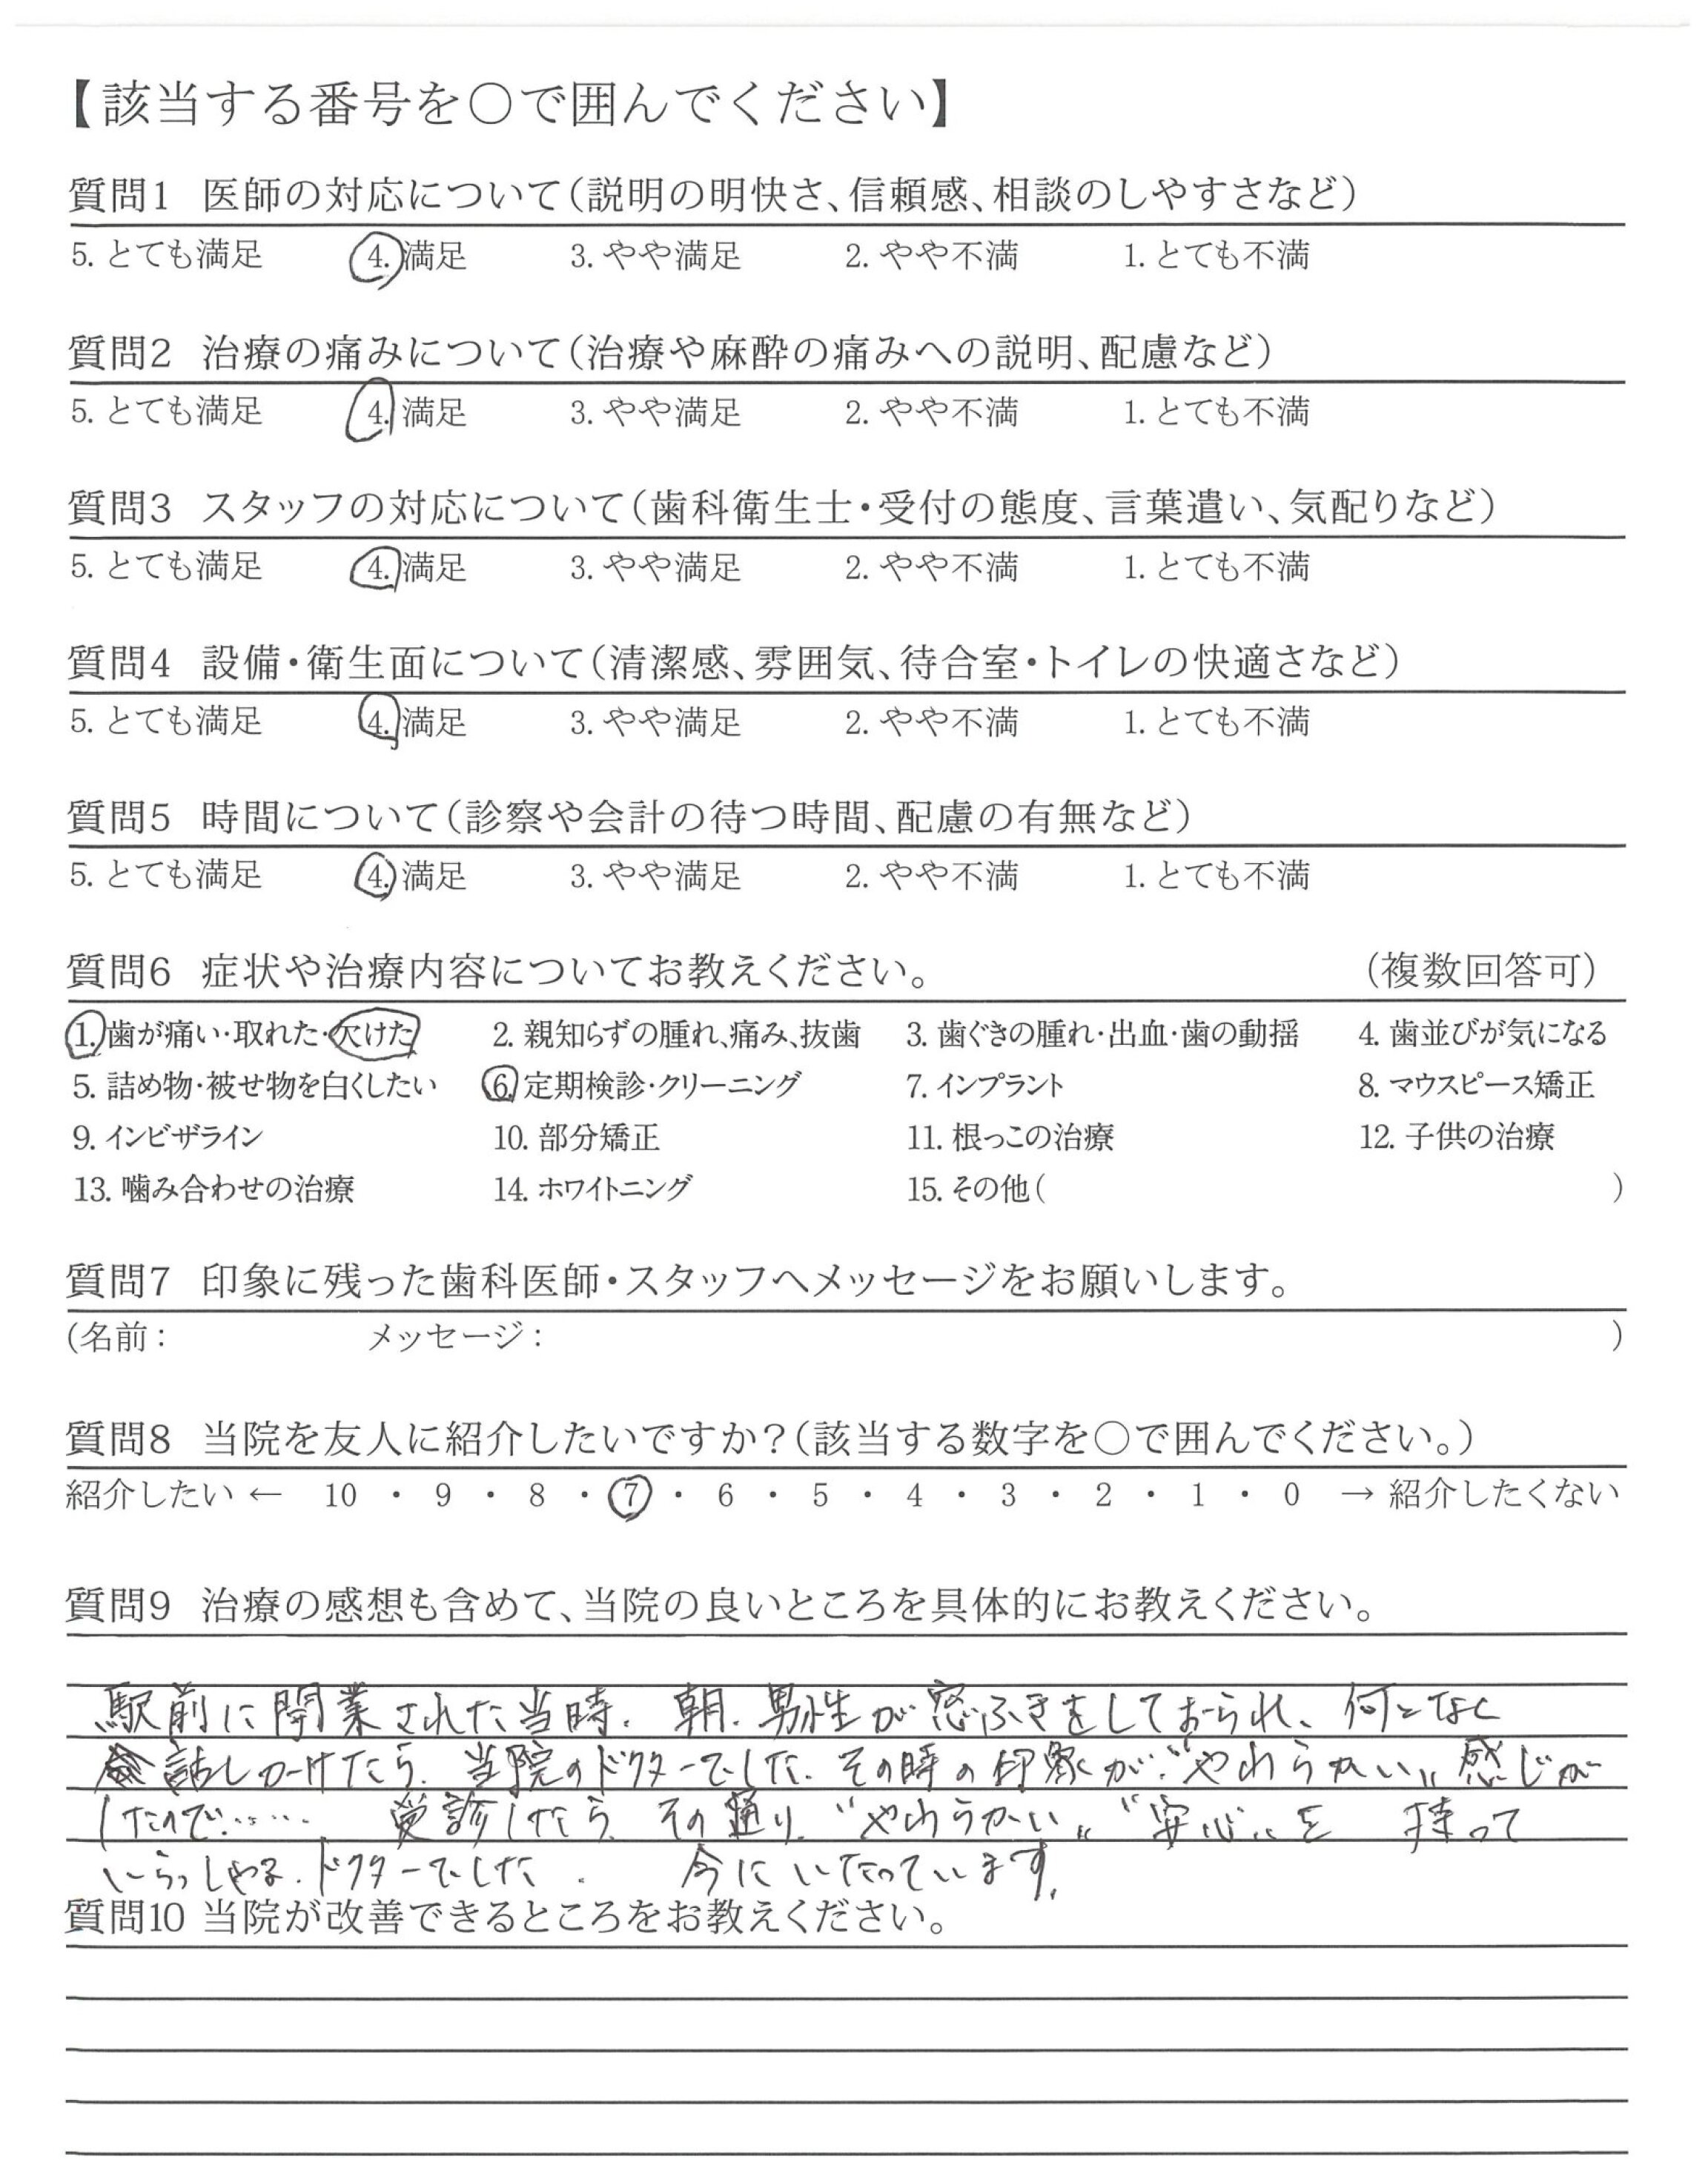 【該当する番号を〇で囲んでください】
質問1 医師の対応について(説明の明快さ、信頼感、相談のしやすさなど)
5. とても満足 4. 満足 3. やや満足 2. やや不満 1. とても不満
質問2 治療の痛みについて(治療や麻酔の痛みへの説明、配慮など)
5. とても満足 4. 満足 3. やや満足 2. やや不満 1. とても不満
質問3 スタッフの対応について(歯科衛生士・受付の態度、言葉遣い、気配りなど)
5. とても満足 4. 満足 3. やや満足 2. やや不満 1. とても不満
質問4 設備・衛生面について(清潔感、雰囲気、待合室・トイレの快適さなど)
5. とても満足 4. 満足 3. やや満足 2. やや不満 1. とても不満
質問5 時間について(診察や会計の待つ時間、配慮の有無など)
5. とても満足 4. 満足 3. やや満足 2. やや不満 1. とても不満
質問6 症状や治療内容についてお教えください。 (複数回答可)
1. 歯が痛い・取れた・欠けた 2. 親知らずの腫れ、痛み、抜歯 3. 歯ぐきの腫れ・出血・歯の動揺 4. 歯並びが気になる
5. 詰め物・被せ物を白くしたい 6. 定期検診・クリーニング 7. インプラント 8. マウスピース矯正
9. インビザライン 10. 部分矯正 11. 根っこの治療 12. 子供の治療
13. 噛み合わせの治療 14. ホワイトニング 15. その他( )
質問7 印象に残った歯科医師・スタッフへメッセージをお願いします。
(名前: メッセージ: )
質問8 当院を友人に紹介したいですか?(該当する数字を〇で囲んでください。)
紹介したい ← 10 ・ 9 ・ 8 ・ 7 ・ 6 ・ 5 ・ 4 ・ 3 ・ 2 ・ 1 ・ 0 → 紹介したくない
質問9 治療の感想も含めて、当院の良いところを具体的にお教えください。
駅前に開業された当時、朝、男性が窓ふきをしておられ、何となく
話しかけたら、当院のドクターでした。その時の印象が、"やわらかい"感じが
したので…… 受診したら、その通り、"やわらかい" "安心"を 持って
いらっしゃる、ドクターでした。 今にいたっています。
質問10 当院が改善できるところをお教えください。